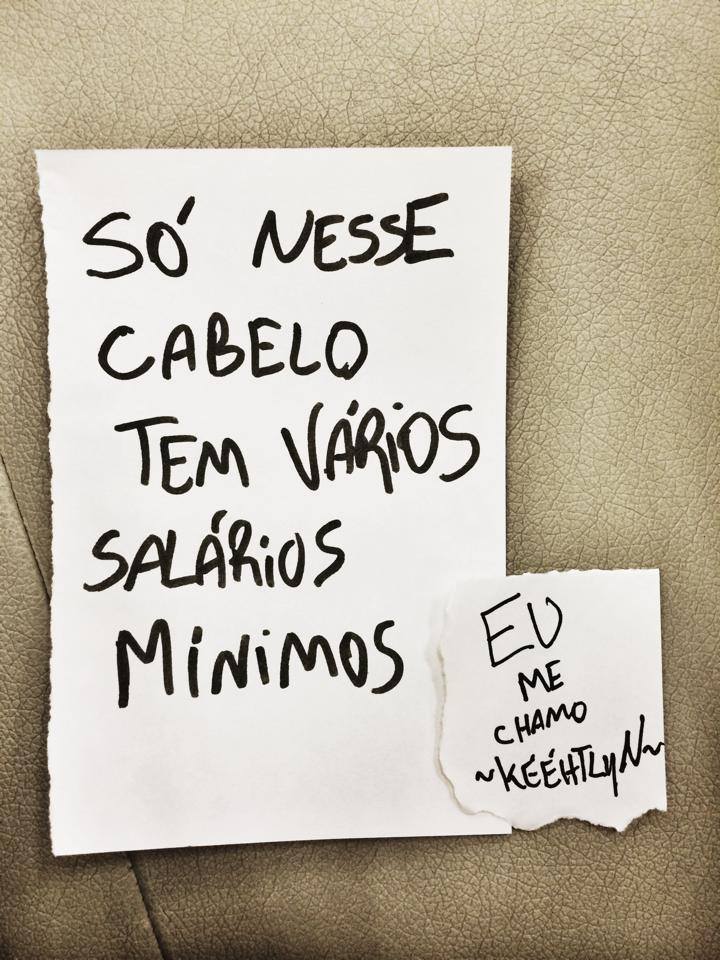 SÓ NESSE
CABELO
TEM VÁRiOS
SALÁRiOS
MÍNiMOS
EU
ME
CHAMO
~KÉÉHTLyN~